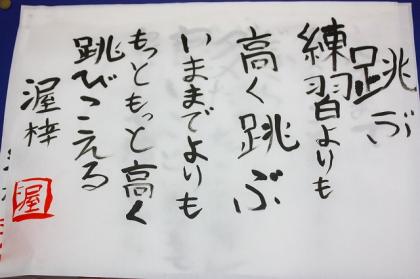 跳ぶ
練習よりも
高く跳ぶ
いままでよりも
もっともっと高く
跳びこえる
渥梓
渥